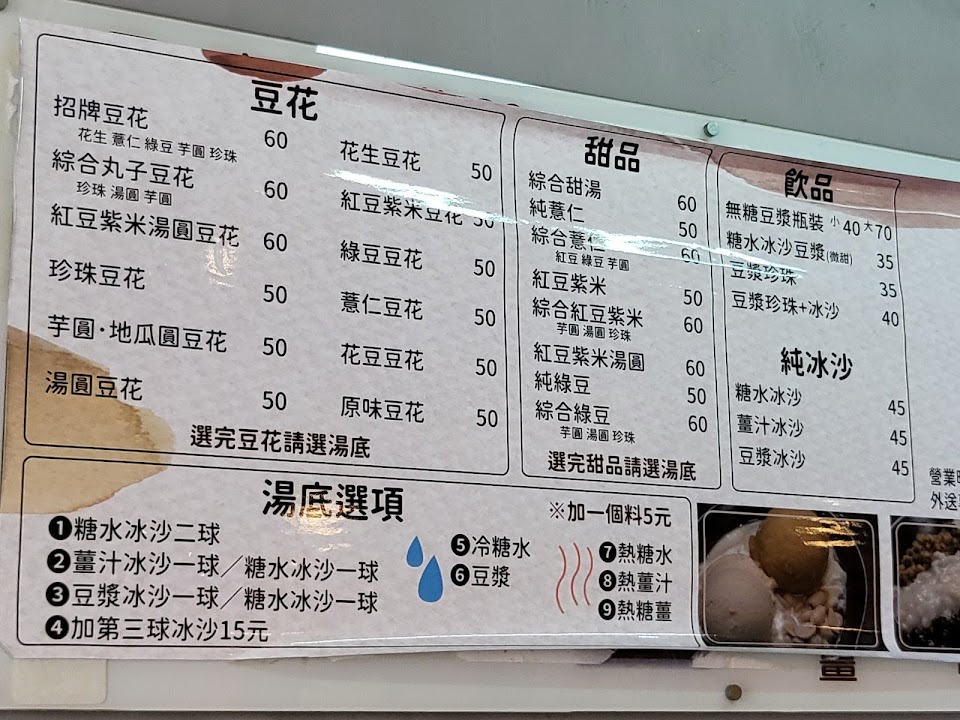 豆花
招牌豆花 60
花生 薏仁 綠豆 芋圓 珍珠
綜合丸子豆花 60
珍珠 湯圓 芋圓
紅豆紫米湯圓豆花 60
珍珠豆花 50
芋圓·地瓜圓豆花 50
湯圓豆花 50
花生豆花 50
紅豆紫米豆花 50
綠豆豆花 50
薏仁豆花 50
花豆豆花 50
原味豆花 50
選完豆花請選湯底
甜品
綜合甜湯 60
純薏仁 50
綜合薏仁 60
紅豆 綠豆 芋圓
紅豆紫米 50
綜合紅豆紫米 60
芋圓 湯圓 珍珠
紅豆紫米湯圓 60
純綠豆 50
綜合綠豆 60
芋圓 湯圓 珍珠
選完甜品請選湯底
飲品
無糖豆漿瓶裝 小40大70
糖水冰沙豆漿(微甜) 35
豆漿珍珠 35
豆漿珍珠+冰沙 40
純冰沙
糖水冰沙 45
薑汁冰沙 45
豆漿冰沙 45
湯底選項
※加一個料5元
❶糖水冰沙二球
❷薑汁冰沙一球／糖水冰沙一球
❸豆漿冰沙一球／糖水冰沙一球
❹加第三球冰沙15元
❺冷糖水
❻豆漿
❼熱糖水
❽熱薑汁
❾熱糖薑
營業
外送